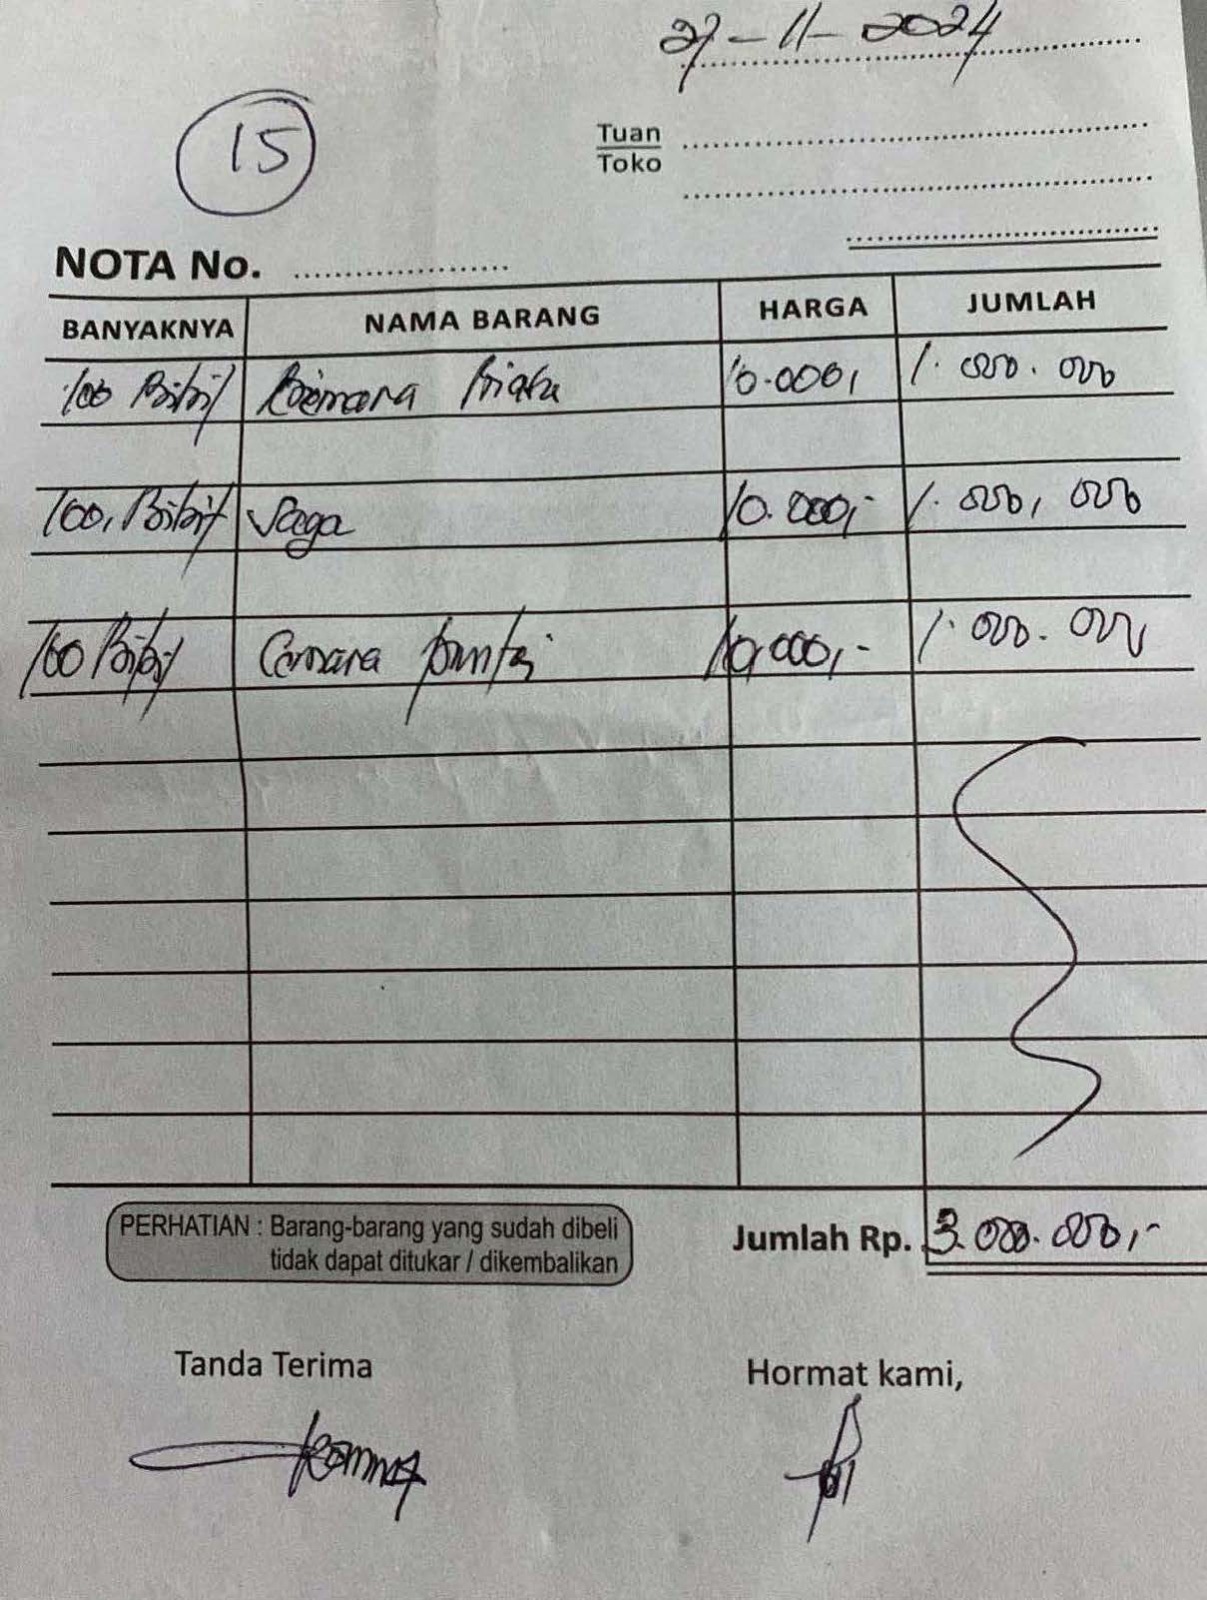 27-11-2024
15
Tuan
Toko
NOTA No.
BANYAKNYA NAMA BARANG HARGA JUMLAH
100 Bibit 10.000, 1.000.000
100, Bibit Saga 10.000,- 1.000,000
100 Bibit Cemara pantai 10,000,- 1.000.000
PERHATIAN : Barang-barang yang sudah dibeli
tidak dapat ditukar / dikembalikan
Jumlah Rp. 3.000.000,-
Tanda Terima Hormat kami,